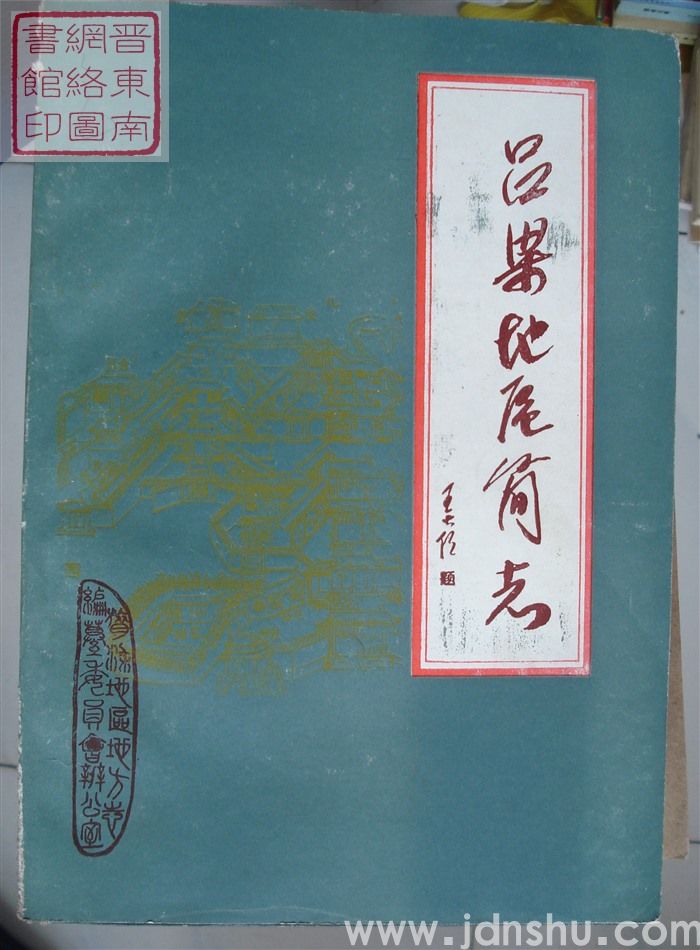 晋東南
網絡圖
書館印
吕梁地区简志
王大任
題
吕梁地區地方志
編纂委員會辦公室
www.jdnshu.com